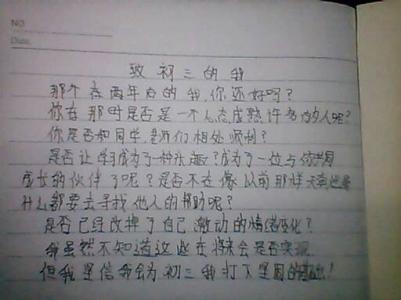 NO
Date.
致初三的我
那个在两年后的我，你还好吗？
你在那时是否是一个心态成熟许多的人呢？
你是否和同学、老师们相处顺利？
是否让学习成为了一种乐趣？成为了一位与你共同
成长的伙伴了呢？是否不在像以前那样天真地
什么都要去寻找他人的帮助呢？
是否已经改掉了自己激动的情绪变化？
我虽然不知道这些在将来会是否实现
但我坚信我会为初三我打下坚固的基础！